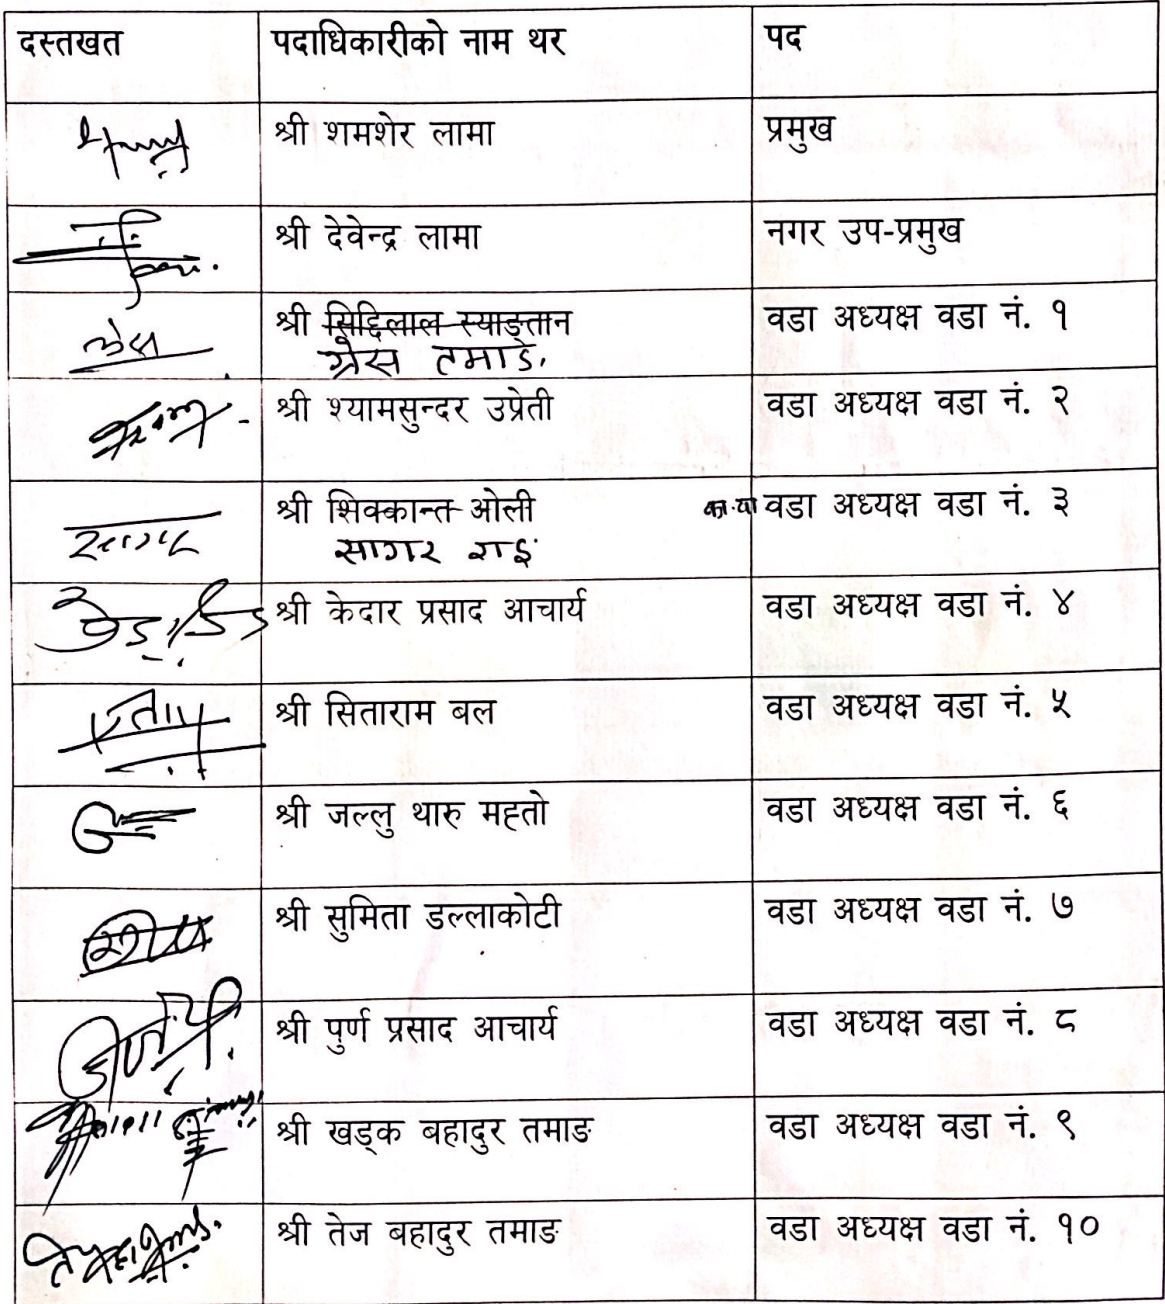 दस्तखत पदाधिकारीको नाम थर पद
श्री शमशेर लामा प्रमुख
श्री देवेन्द्र लामा नगर उप-प्रमुख
श्री सिद्दिलाल स्याङ्तान वडा अध्यक्ष वडा नं. १
ग्रेस तमाङ
श्री श्यामसुन्दर उप्रेती वडा अध्यक्ष वडा नं. २
श्री शिवकान्त ओली का.वा वडा अध्यक्ष वडा नं. ३
सागर राई
श्री केदार प्रसाद आचार्य वडा अध्यक्ष वडा नं. ४
श्री सिताराम बल वडा अध्यक्ष वडा नं. ५
श्री जल्लु थारु महतो वडा अध्यक्ष वडा नं. ६
श्री सुमिता डल्लाकोटी वडा अध्यक्ष वडा नं. ७
श्री पुर्ण प्रसाद आचार्य वडा अध्यक्ष वडा नं. ८
श्री खड्क बहादुर तमाङ वडा अध्यक्ष वडा नं. ९
श्री तेज बहादुर तमाङ वडा अध्यक्ष वडा नं. १०